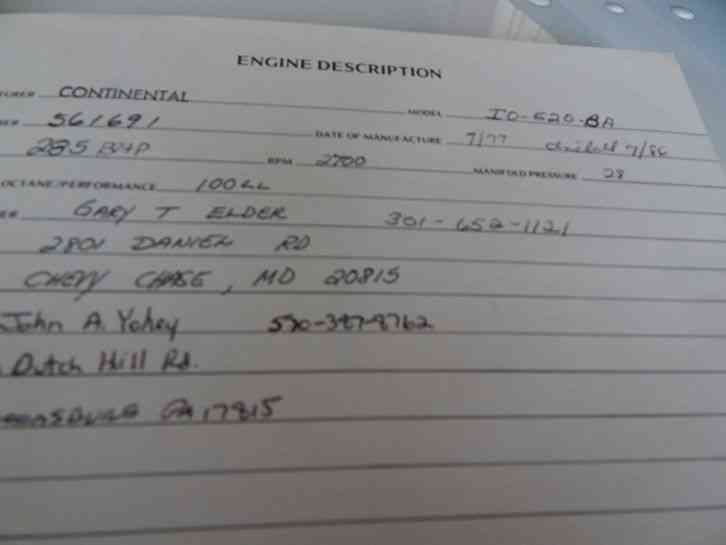 ENGINE DESCRIPTION
CONTINENTAL MODEL IO-520-BA
561691 DATE OF MANUFACTURE 7/77 7/86
285 BHP RPM 2700 MANIFOLD PRESSURE 28
OCTANE/PERFORMANCE 100LL
GARY T ELDER 301-652-1121
2801 DANIEL RD
CHEVY CHASE, MD 20815
John A. Yohey 570-387-8762
Dutch Hill Rd.
PA 17815